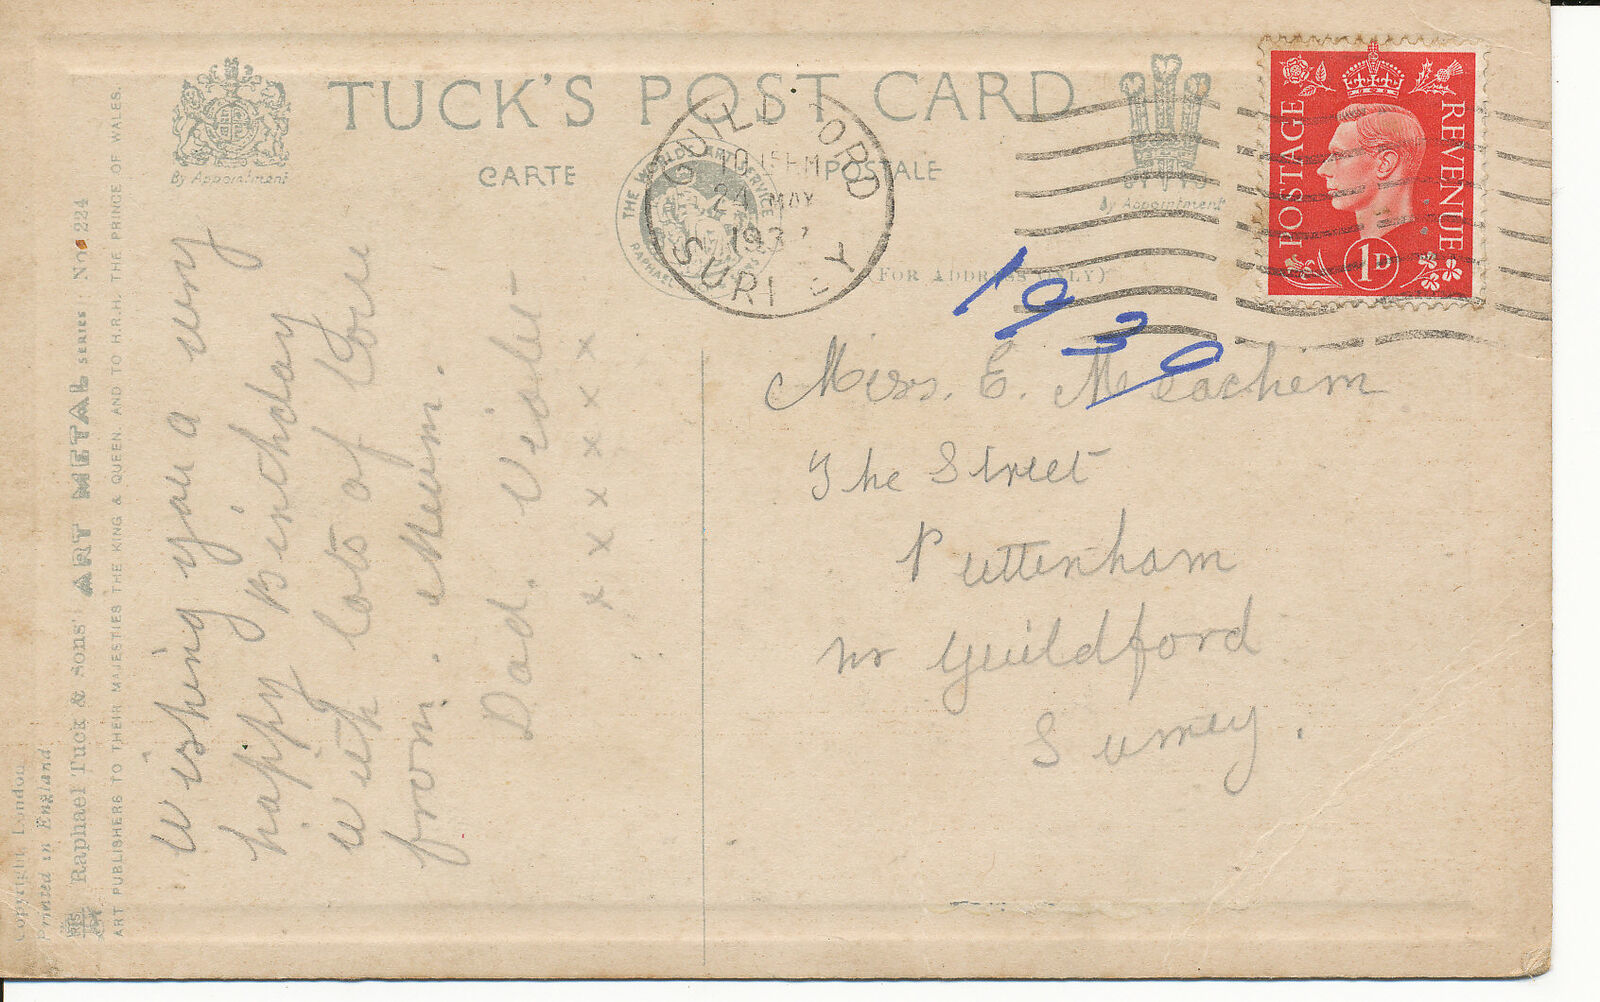 TUCK'S POST CARD
CARTE POSTALE
By Appointment
By Appointment
(FOR ADDRESS ONLY)
THE WORLD'S ART SERVICE
RAPHAEL
GUILDFORD
10.15 PM
MAY
1937
SURREY
POSTAGE
REVENUE
1D
1939
Miss. E. Meachem
The Street
Puttenham
nr Guildford
Surrey.
Wishing you a very
happy Birthday
with lots of love
from. Mum.
Dad. Violet
x x x x x x
Copyright London
Printed in England
Raphael Tuck & Sons' ART METAL series No. 224
ART PUBLISHERS TO THEIR MAJESTIES THE KING & QUEEN, AND TO H.R.H. THE PRINCE OF WALES.